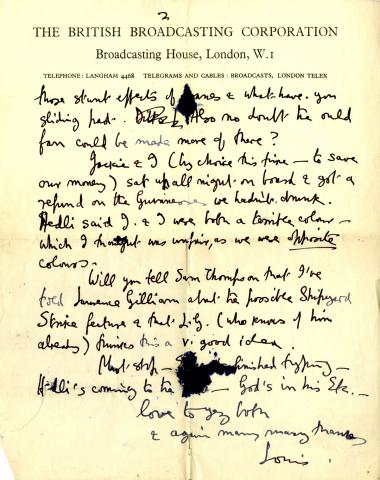 2
THE BRITISH BROADCASTING CORPORATION
Broadcasting House, London, W.1
TELEPHONE: LANGHAM 4468 TELEGRAMS AND CABLES: BROADCASTS, LONDON TELEX
those stunt effects of & what-have-you
sliding past. Also no doubt the ould
fan could be made more of there?
Jackie & I (by choice this time — to save
our money) sat up all night on board & got a
refund on the Guinnesses we hadn't drunk.
Hedli said J. & I were both a terrible colour —
which I thought was unfair, as we were opposite
colours.
Will you tell Sam Thompson that I've
told Laurence Gilliam about the possible Shipyard
Strike feature & that L.G. (who knows of him
already) thinks this a v. good idea.
Must stop — finished typing —
Hedli's coming to the — God's in his Etc. —
love to you both
& again many many thanks
Louis.